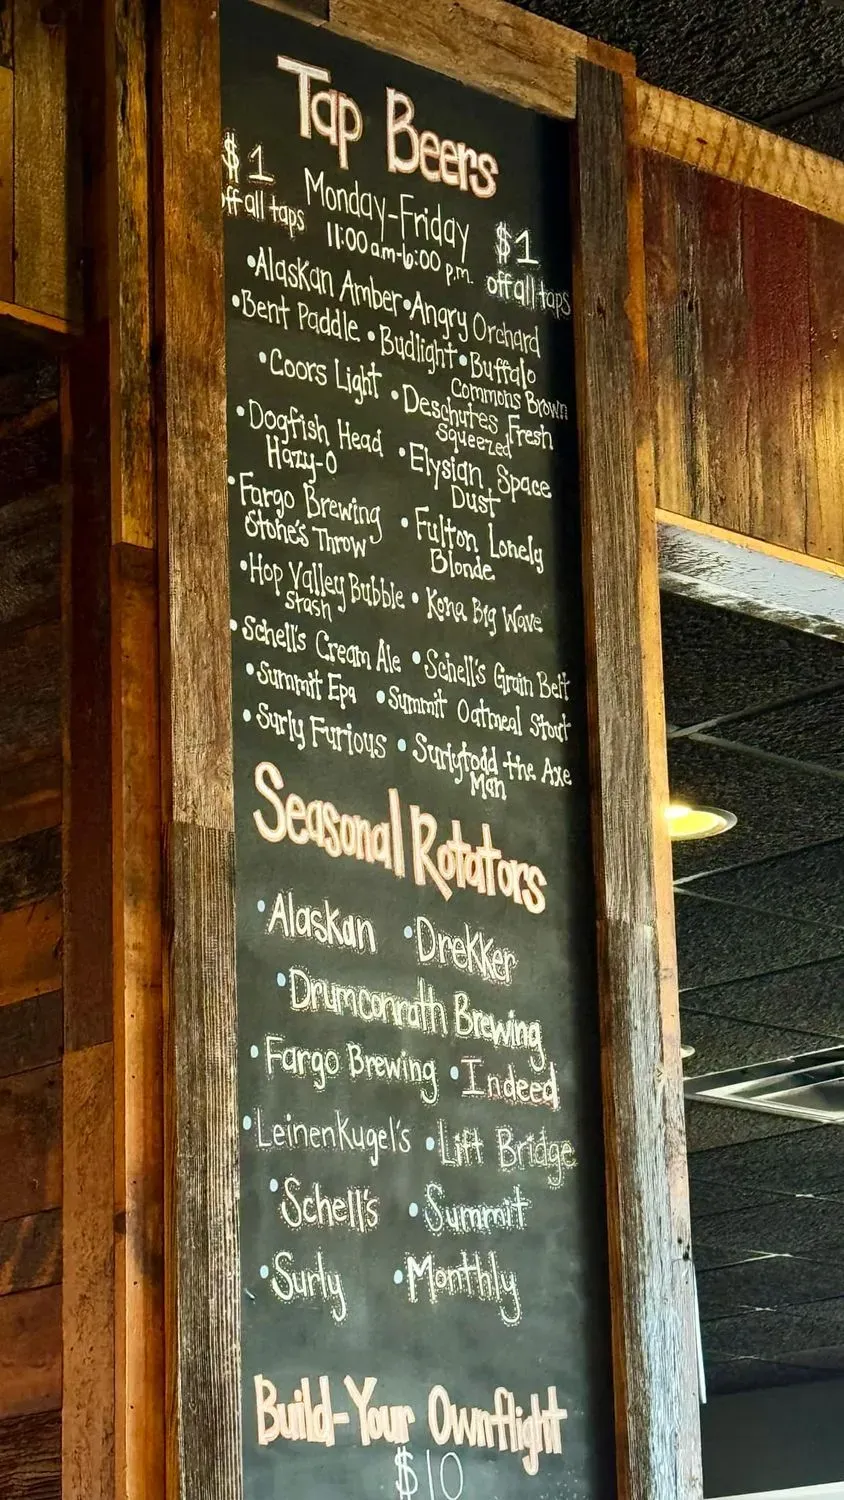 Tap Beers
$1
off all taps
Monday-Friday
11:00 am-6:00 p.m.
$1
off all taps
•Alaskan Amber •Angry Orchard
•Bent Paddle •Budlight •Buffalo
Commons Brown
•Coors Light •Deschutes Fresh
Squeezed
•Dogfish Head
Hazy-O
•Elysian Space
Dust
•Fargo Brewing
Stone's Throw
•Fulton Lonely
Blonde
•Hop Valley Bubble
Stash
•Kona Big Wave
•Schell's Cream Ale •Schell's Grain Belt
•Summit Epa •Summit Oatmeal Stout
•Surly Furious •Surlytodd the Axe
Man
Seasonal Rotators
•Alaskan •Drekker
•Drumconrath Brewing
•Fargo Brewing •Indeed
•Leinenkugel's •Lift Bridge
•Schell's •Summit
•Surly •Monthly
Build-Your Ownflight
$10